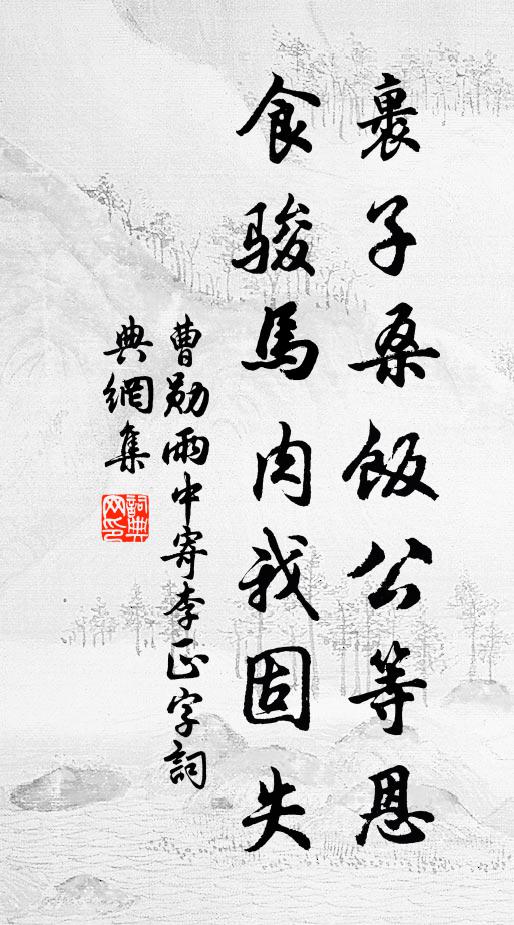 裹子桑飯公等恩
食骏馬肉我固失
曹勋雨中寄李正字詞
典網集
詞典網印